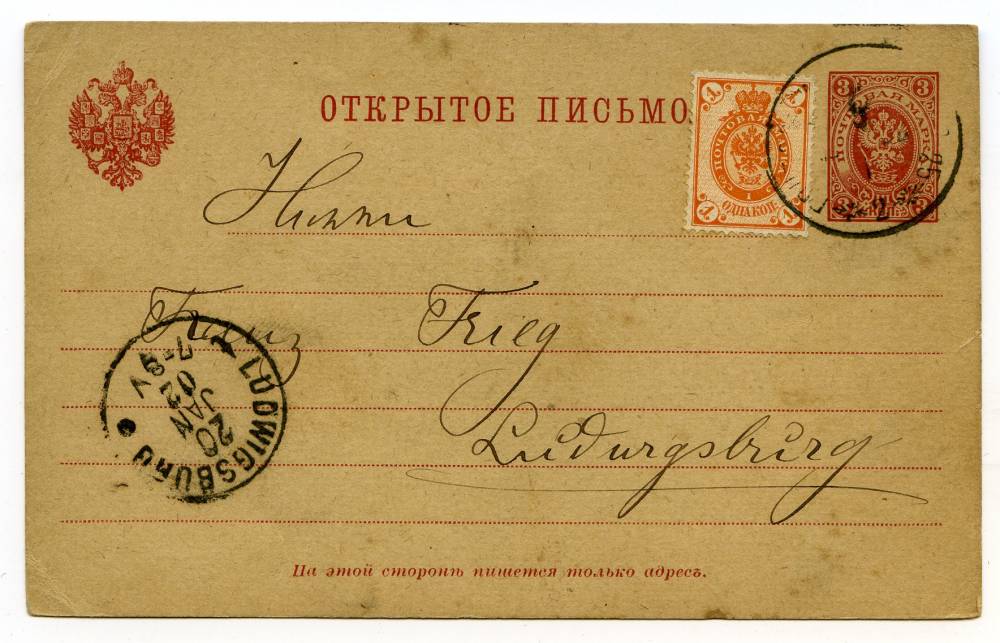 ОТКРЫТОЕ ПИСЬМО
1 1
ПОЧТОВАЯ МАРКА
1
ОДНА КОП.
1 1
3 3
ПОЧТОВАЯ МАРКА
Franz Krieg
Ludwigsburg
LUDWIGSBURG
20
JAN
02
7-8V
На этой сторонѣ пишется только адресъ.